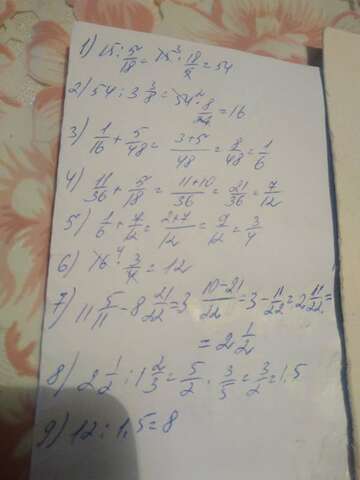 1) 15 : 5/18 = 15 · 18/5 = 54
2) 54 : 3 3/8 = 54 · 8/27 = 16
3) 1/16 + 5/48 = 3+5/48 = 8/48 = 1/6
4) 11/36 + 5/18 = 11+10/36 = 21/36 = 7/12
5) 1/6 + 7/12 = 2+7/12 = 9/12 = 3/4
6) 16 · 3/4 = 12
7) 11 5/11 - 8 21/22 = 3 10-21/22 = 3 - 11/22 = 2 11/22 =
= 2 1/2
8) 2 1/2 : 1 2/3 = 5/2 · 3/5 = 3/2 = 1,5
9) 12 : 1,5 = 8